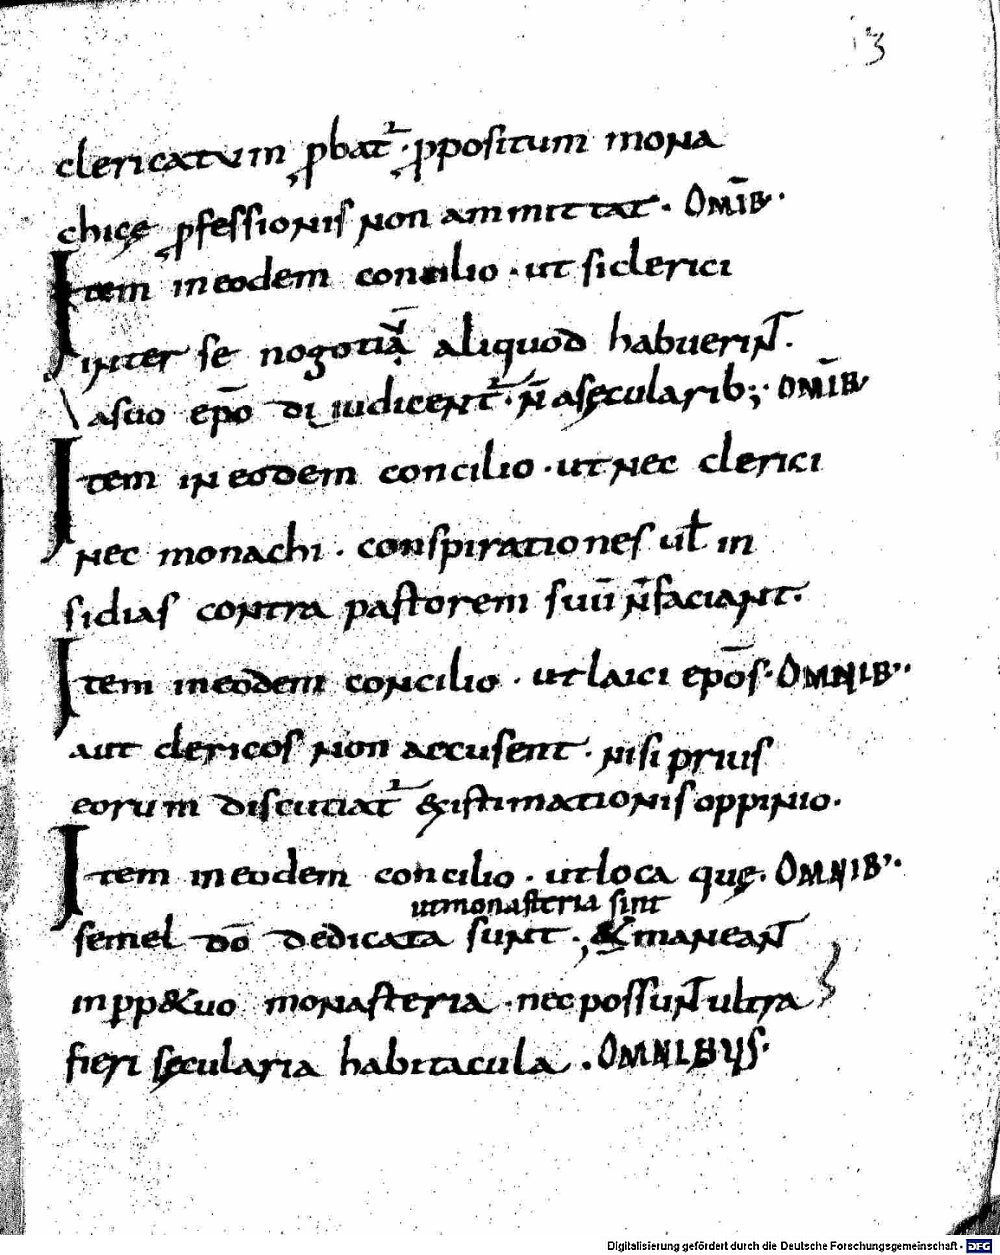 13
clericatum ꝓbat᷑· ꝓpositum mona
chicę ꝓfessionis non ammittat. Omīb·
Item in eodem concilio · ut si clerici
inter se nogotiū aliquod habuerint.
a suo ep̄o diiudicent᷑· n̄ a sęcularib; · omīb
Item in eodem concilio · ut nec clerici
nec monachi · conspirationes ul̄ in
sidias contra pastorem suū n̄ faciant.
Item in eodem concilio · ut laici ep̄os · Omnib·
aut clericos non accusent · nisi prius
eorum discutiat᷑ & istimationis oppinio.
Item in eodem concilio · ut loca quę · Omnib·
ut monasteria sint
semel dō dedicata sunt · & maneant
in ꝑp&uo monasteria · nec possunt ultra
fieri sęcularia habitacula . OMNIBUS·
Digitalisierung gefördert durch die Deutsche Forschungsgemeinschaft - DFG